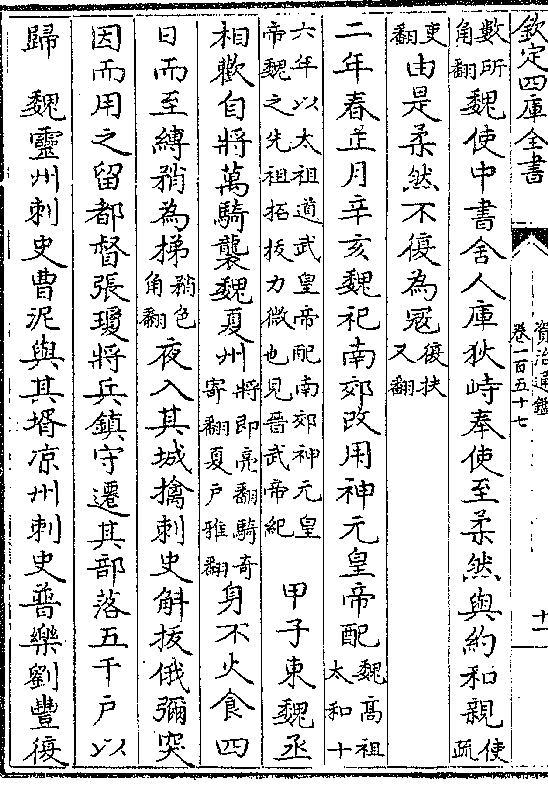 欽定四庫全書
資治通鑑
卷一百五十七
十一
數所角翻魏使中書舍人庫狄峙奉使至柔然與約和親使疏
吏翻由是柔然不復為冦復扶又翻
二年春正月辛亥魏祀南郊改用神元皇帝配魏高祖太和十
六年以太祖道武皇帝配南郊神元皇帝魏之先祖拓拔力微也見晉武帝紀 甲子東魏丞
相歡自將萬騎襲魏夏州將即亮翻騎奇寄翻夏戶雅翻身不火食四
日而至縛矟為梯矟色角翻夜入其城擒刺史斛拔俄彌突
因而用之留都督張瓊將兵鎮守遷其部落五千戶以
歸 魏靈州刺史曹泥與其壻凉州刺史普樂劉豐復